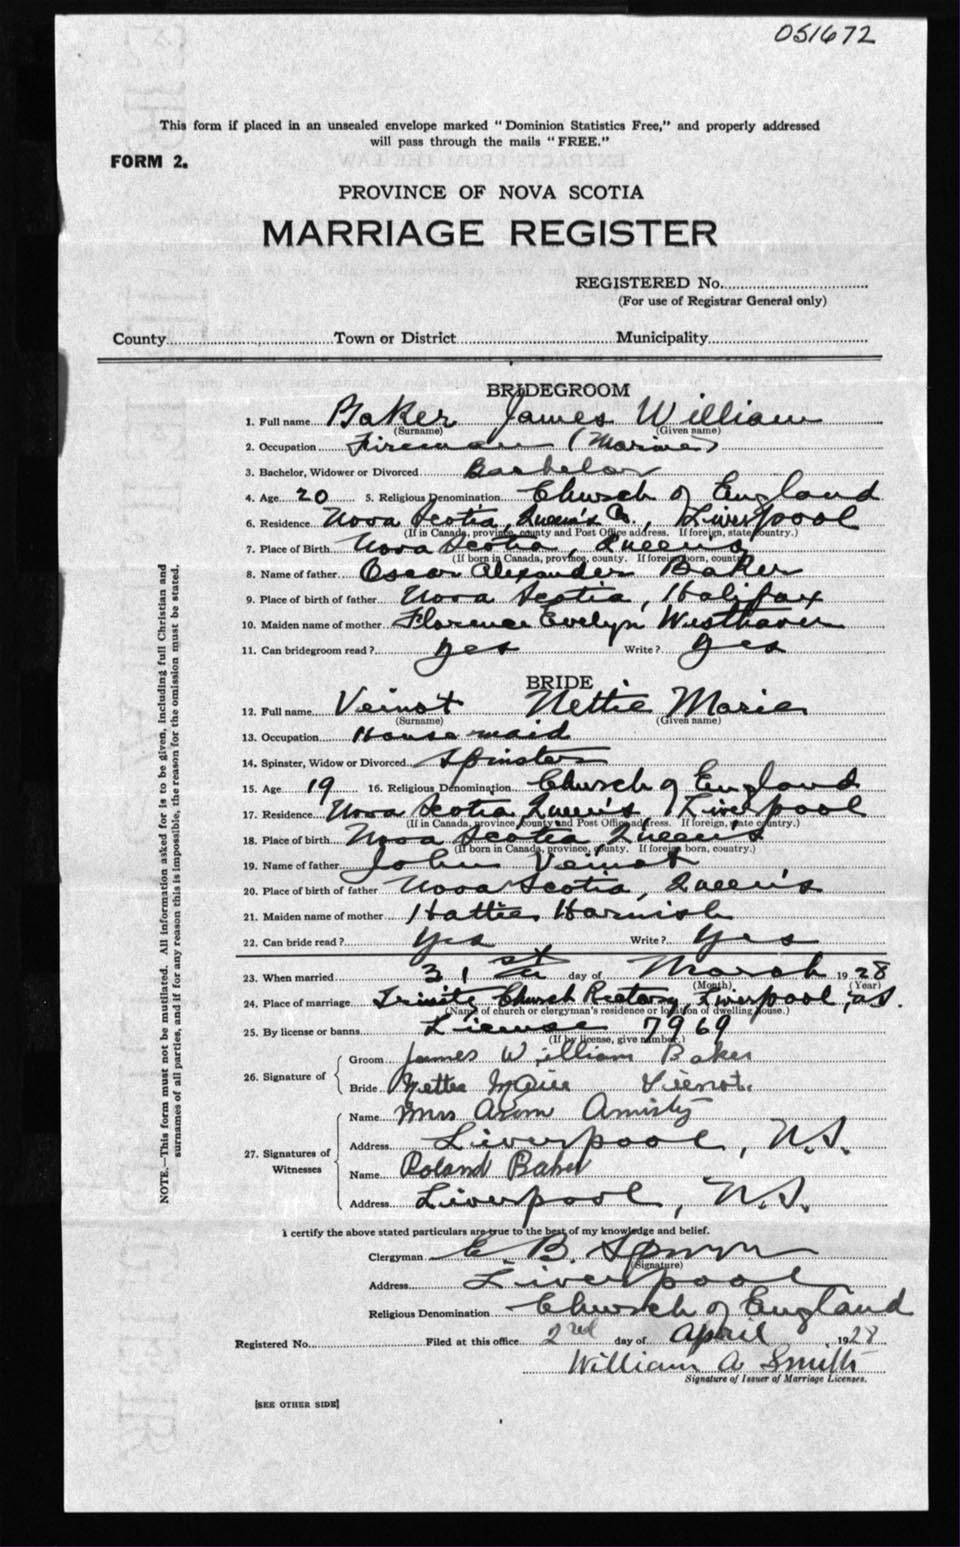 051672
This form if placed in an unsealed envelope marked "Dominion Statistics Free," and properly addressed
will pass through the mails "FREE."
FORM 2.
PROVINCE OF NOVA SCOTIA
MARRIAGE REGISTER
REGISTERED No.
(For use of Registrar General only)
County Town or District Municipality
BRIDEGROOM
1. Full name Baker James William
(Surname) (Given name)
2. Occupation Fireman (Marine)
3. Bachelor, Widower or Divorced Bachelor
4. Age 20 5. Religious Denomination Church of England
6. Residence Nova Scotia, Queen's Co., Liverpool
(If in Canada, province, county and Post Office address. If foreign, state country.)
7. Place of Birth Nova Scotia, Queen's
(If born in Canada, province, county. If foreign born, country.)
8. Name of father Oscar Alexander Baker
9. Place of birth of father Nova Scotia, Halifax
10. Maiden name of mother Florence Evelyn Westhaver
11. Can bridegroom read? yes Write? yes
BRIDE
12. Full name Veinot Nettie Marie
(Surname) (Given name)
13. Occupation House maid
14. Spinster, Widow or Divorced Spinster
15. Age 19 16. Religious Denomination Church of England
17. Residence Nova Scotia Queen's Liverpool
(If in Canada, province, county and Post Office address. If foreign, state country.)
18. Place of birth Nova Scotia Queen's
(If born in Canada, province, county. If foreign born, country.)
19. Name of father John Veinot
20. Place of birth of father Nova Scotia, Queen's
21. Maiden name of mother Hattie Harnish
22. Can bride read? yes Write? yes
23. When married 31st day of March 1928
(Month) (Year)
24. Place of marriage Trinity Church Rectory, Liverpool,
(Name of church or clergyman's residence or location of dwelling house.)
25. By license or banns License 7969
(If by license, give number.)
26. Signature of
Groom James William Baker
Bride Nettie Vienot.
27. Signatures of Witnesses
Name Mrs
Address Liverpool, N.S.
Name Roland Baker
Address Liverpool, N.S.
I certify the above stated particulars are true to the best of my knowledge and belief.
Clergyman E. B.
(Signature)
Address Liverpool
Religious Denomination Church of England
Registered No. Filed at this office 2nd day of April 1928
William A Smith
Signature of Issuer of Marriage Licenses.
[SEE OTHER SIDE]
NOTE.—This form must not be mutilated. All information asked for is to be given, including full Christian and
surnames of all parties, and if for any reason this is impossible, the reason for the omission must be stated.